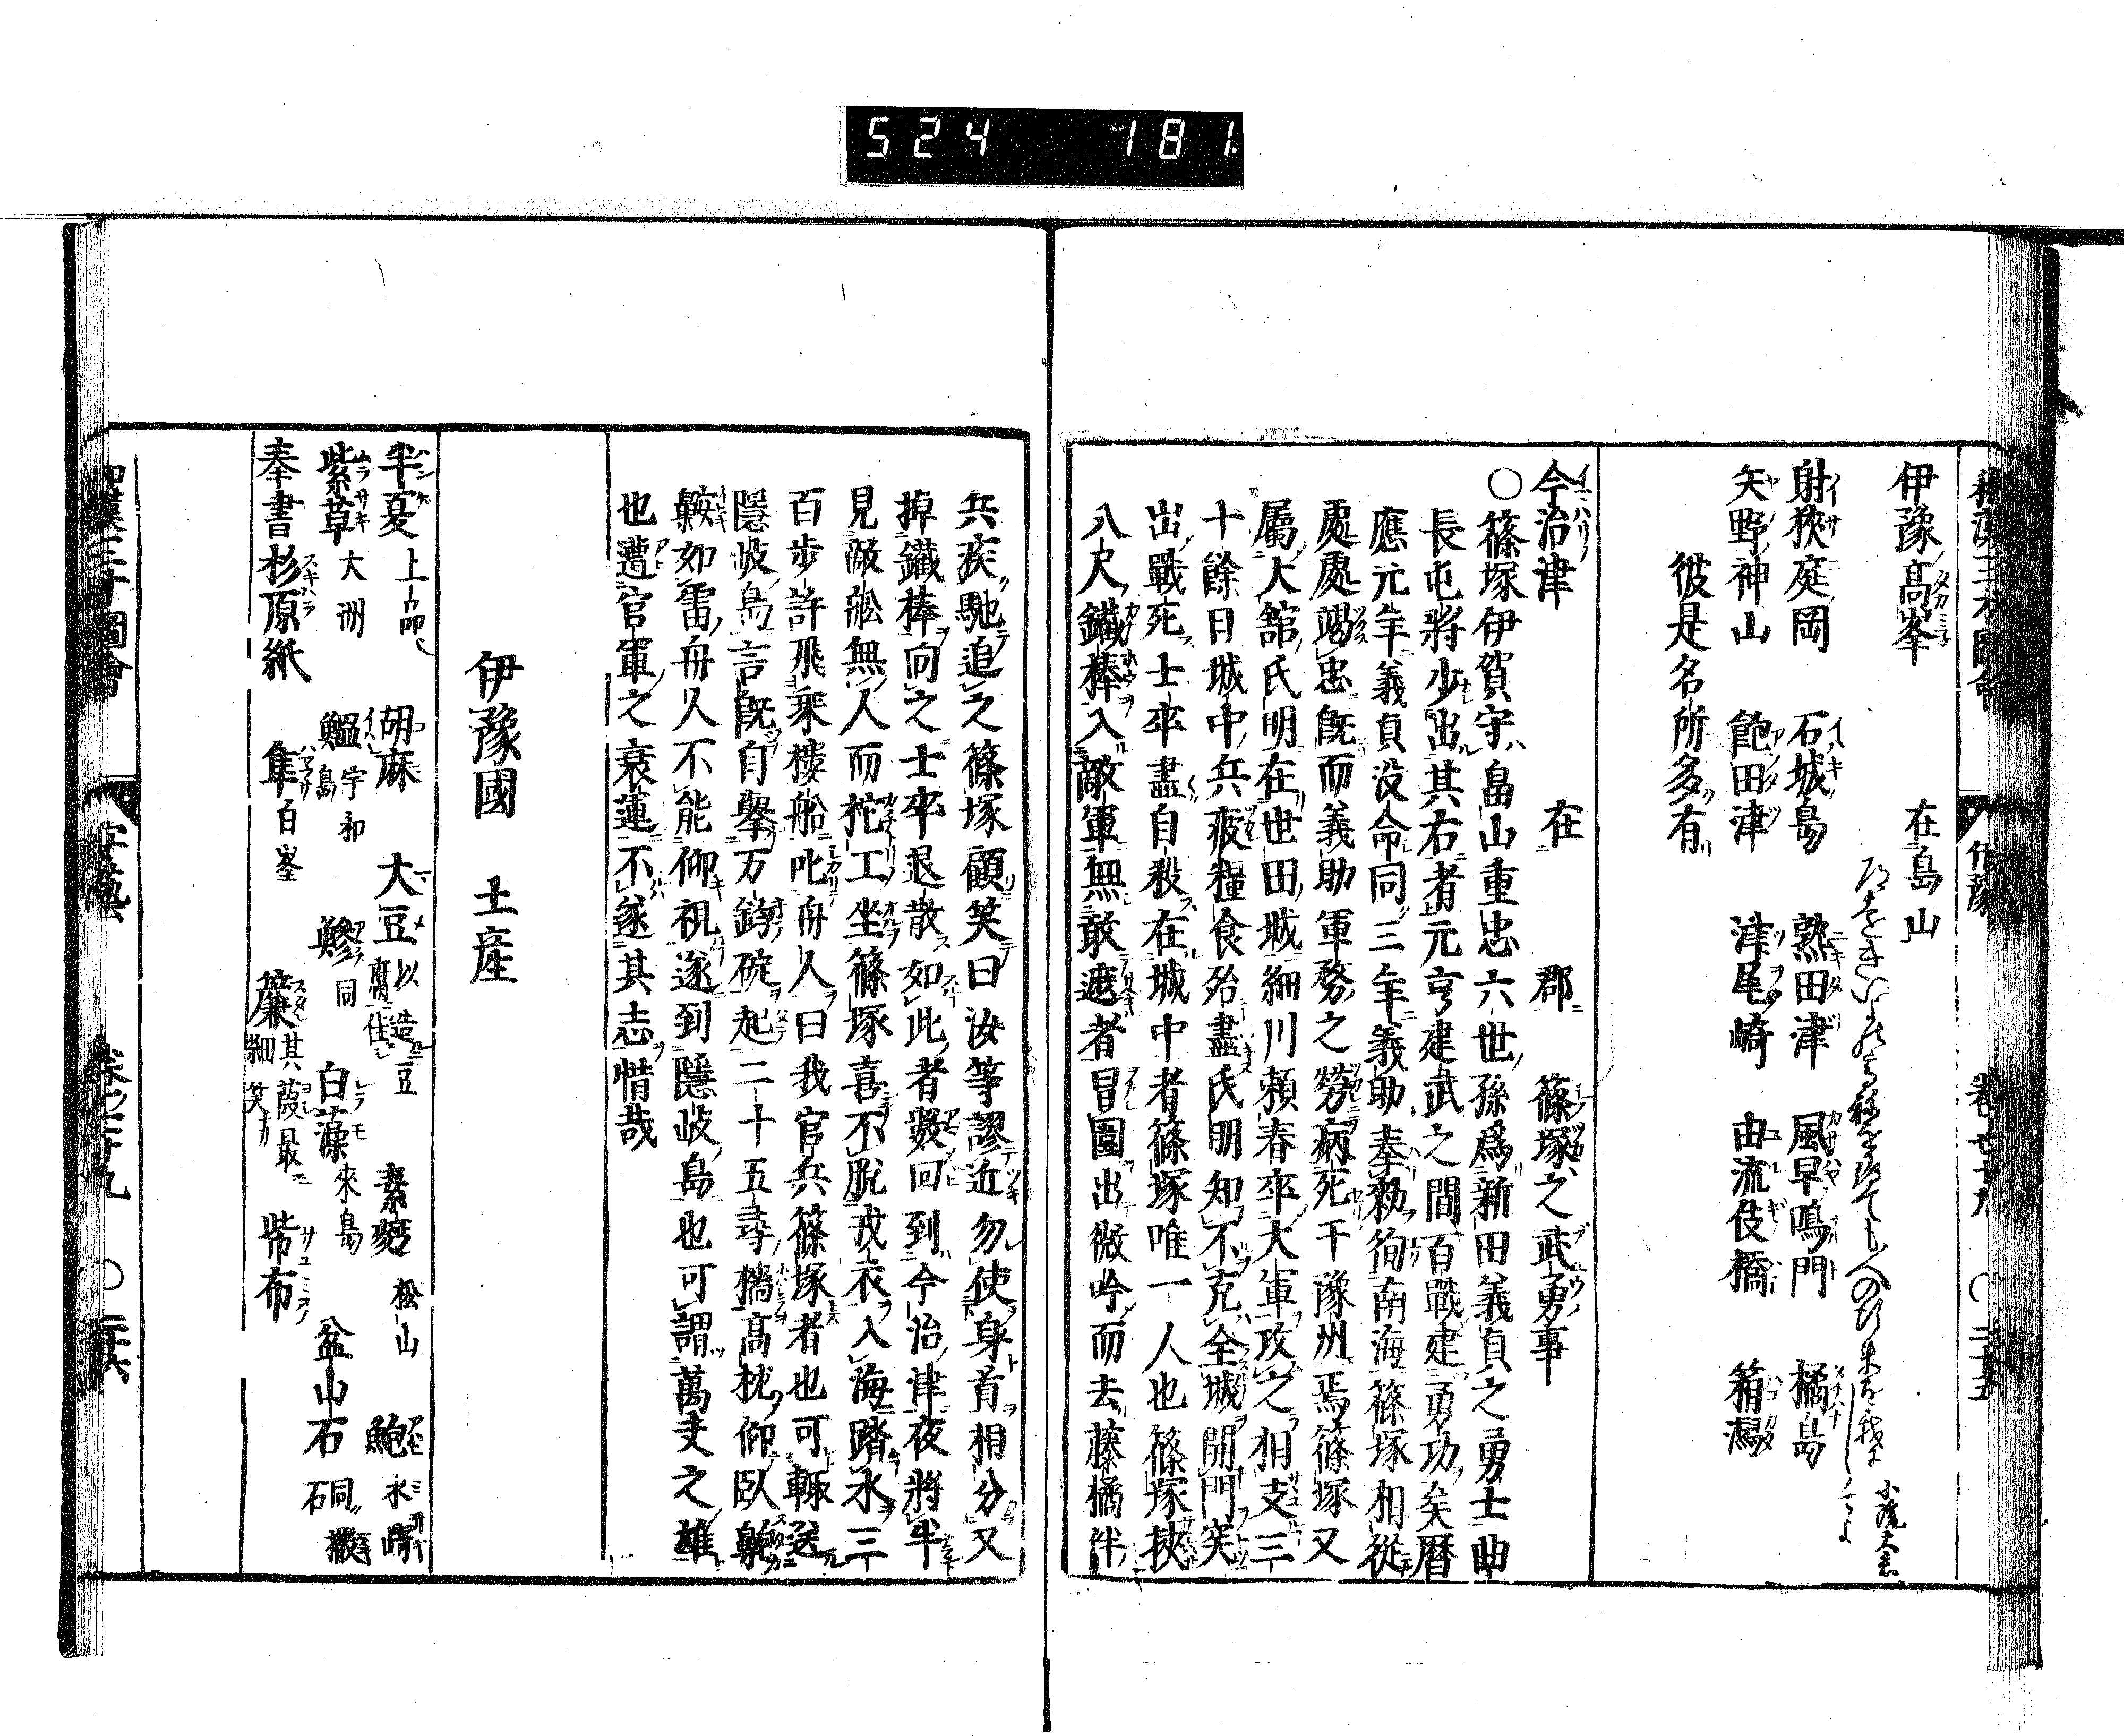 524 181
伊豫
伊豫高峯 在島山
射狹庭岡 石城島 熟田津 風早鳴門 橘島
矢野神山 飽田津 津尾崎 由流伎橋 箱潟
彼是名所多有
今治津 在 郡 篠塚之武勇事
○篠塚伊賀守畠山重忠六世孫爲新田義貞之勇士曲
長屯將少出其右者元亨建武之間百戰建勇功矣曆
應元年義貞没命同三年義助奉勅徇南海篠塚相從
處處竭忠既而義助軍務之勞病死于豫州焉篠塚又
屬大舘氏明在世田城細川頼春卒大軍攻之相支三
十餘日城中兵疲糧食殆盡氏明知不克全城開門突
出戰死士卒盡自殺在城中者篠塚唯一人也篠塚挾
八尺鐵棒入敵軍無敢遮者冒圍出微吟而去藤橘伴
兵疾馳追之篠塚顧笑曰汝等謬近勿使身首相分又
掉鐵棒向之士卒退散如此者數回到今治津夜將半
見敵舩無人而柁工坐篠塚喜不脫戎衣入海踏水三
百步許飛乘樓船叱舟人曰我官兵篠塚者也可輙送
隱岐島言既自擧万鈞碇起二十五尋檣高枕仰臥鼾
如雷舟人不能仰視遂到隱岐島也可謂萬夫之雄
也遭官軍之衰運不遂其志惜哉
伊豫國 土産
半夏上品 胡麻 大豆以造豆腐佳 素麪松山 鮑水崎
紫草大洲 鰮宇和島 鰺同 白藻來島 盆山石
奉書杉原紙 隼白峯 簾其葭最細笑 柴布
安藝